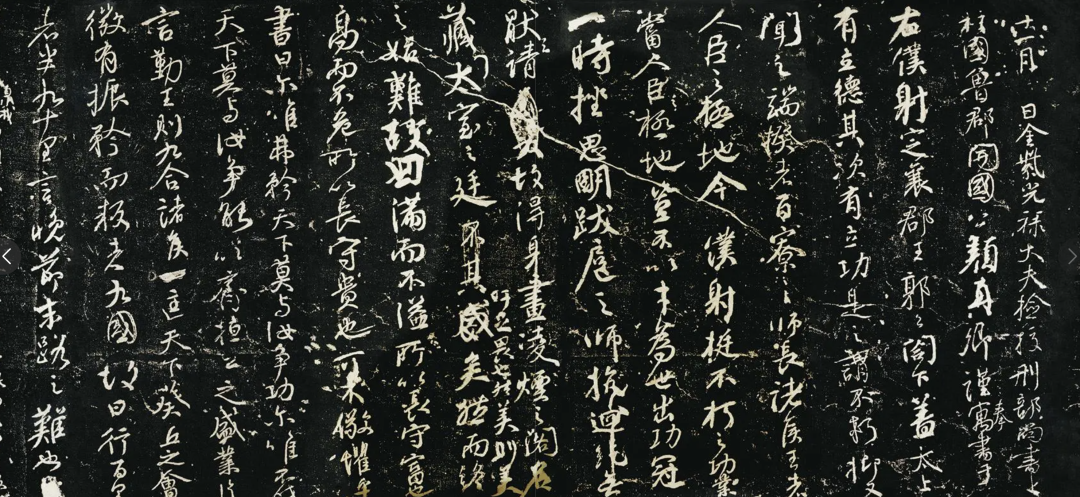 十一月 日金紫光祿大夫檢校刑部尚書上
柱國魯郡開國公顏真卿謹奉寓書于
右僕射定襄郡王郭公閤下蓋太上
有立德其次有立功是之謂不朽抑
聞之端揆者百寮之師長諸侯王者
人臣之極地今僕射挺不朽之功業
當人臣極地豈不以才為世出功冠
一時挫思明跋扈之師抗迴紇無
猒之請故得身畫凌煙之閣名
藏太室之廷吁足畏也然美則美矣而終
之始難故曰滿而不溢所以長守富也
高而不危所以長守貴也可不儆懼乎
書曰爾唯弗矜天下莫與汝爭功爾唯不伐
天下莫與汝爭能以齊桓公之盛業片
言勤王則九合諸侯一匡天下葵丘之會
微有振矜而叛者九國故曰行百里
者半九十里言晚節末路之難也